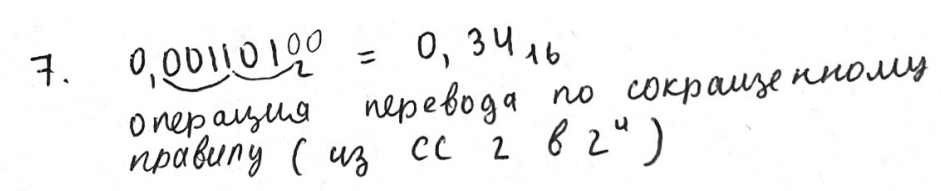 7. 0,001101⁰⁰₂ = 0,34₁₆
операция перевода по сокращенному
правилу (из СС 2 в 2⁴)